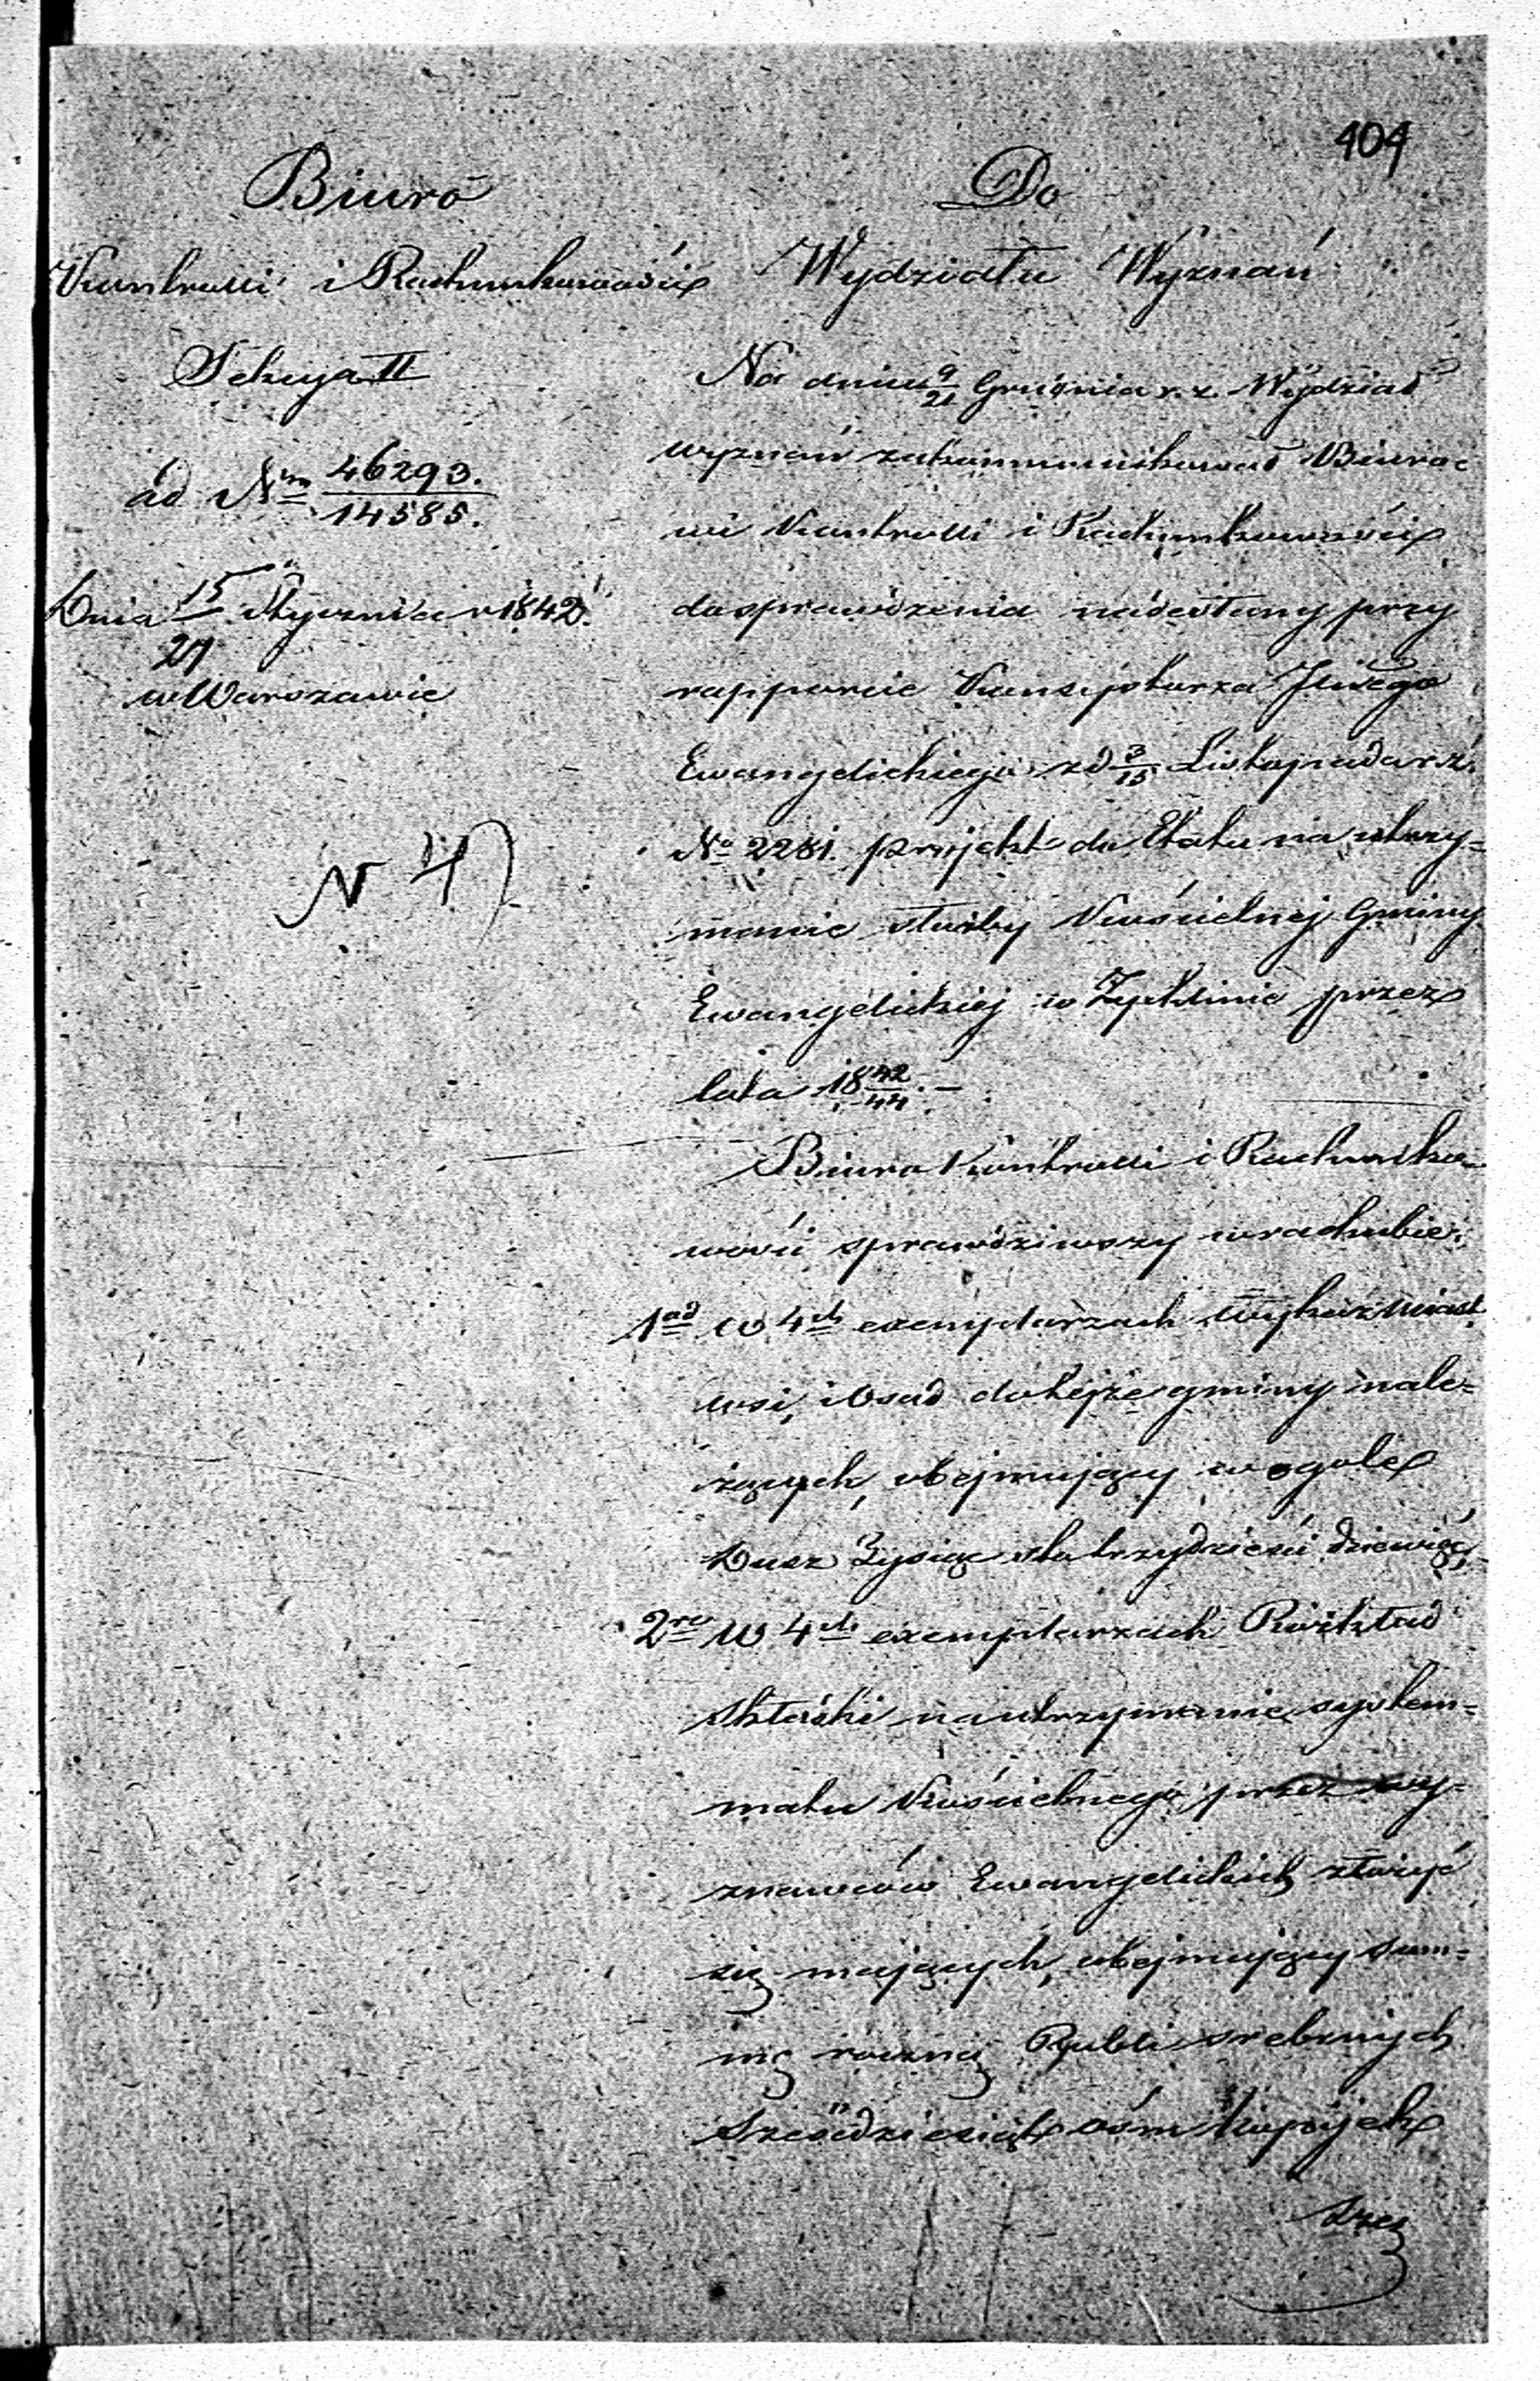 404
Biuro
Kontrolli i Rachunkowości
Sekcya II
ad Nrm 46293.
14585.
Dnia 15/27 Stycznia r 1842.
w Warszawie
N 4
Do
Wydziału Wyznań
Na dniu 9/21 Grudnia r. z. Wydział
wyznań zakommunikował Biuro=
wi Kontrolli i Rachunkowości
do sprawdzenia nadesłany przy
rapporcie Konsystorza Jlnego
Ewangelickiego z d 3/15 Listopada r. z.
No 2281. projekt do Etatu na utrzy=
manie służby Kościelnej Gminy
Ewangelickiej w Żychlinie przez
lata 18 42/44. —
Biuro Kontrolli i Rachunko=
wości sprawdziwszy w rachubie:
1od w 4ch exemplarzach wykaz miast
wsi, i osad do tejże gminy nale=
żących, obejmujący w ogole
Dusz Tysiąc sto trzydzieści dziewięć,
2re w 4ch exemplarzach Rozkład
składki na utrzymanie system=
matu Kościelnego, przez wy=
znawców Ewangelickich złożyć
się mających, obejmujący sum=
mę roczną Rubli srebrnych
sześćdziesiąt ośm kopijek